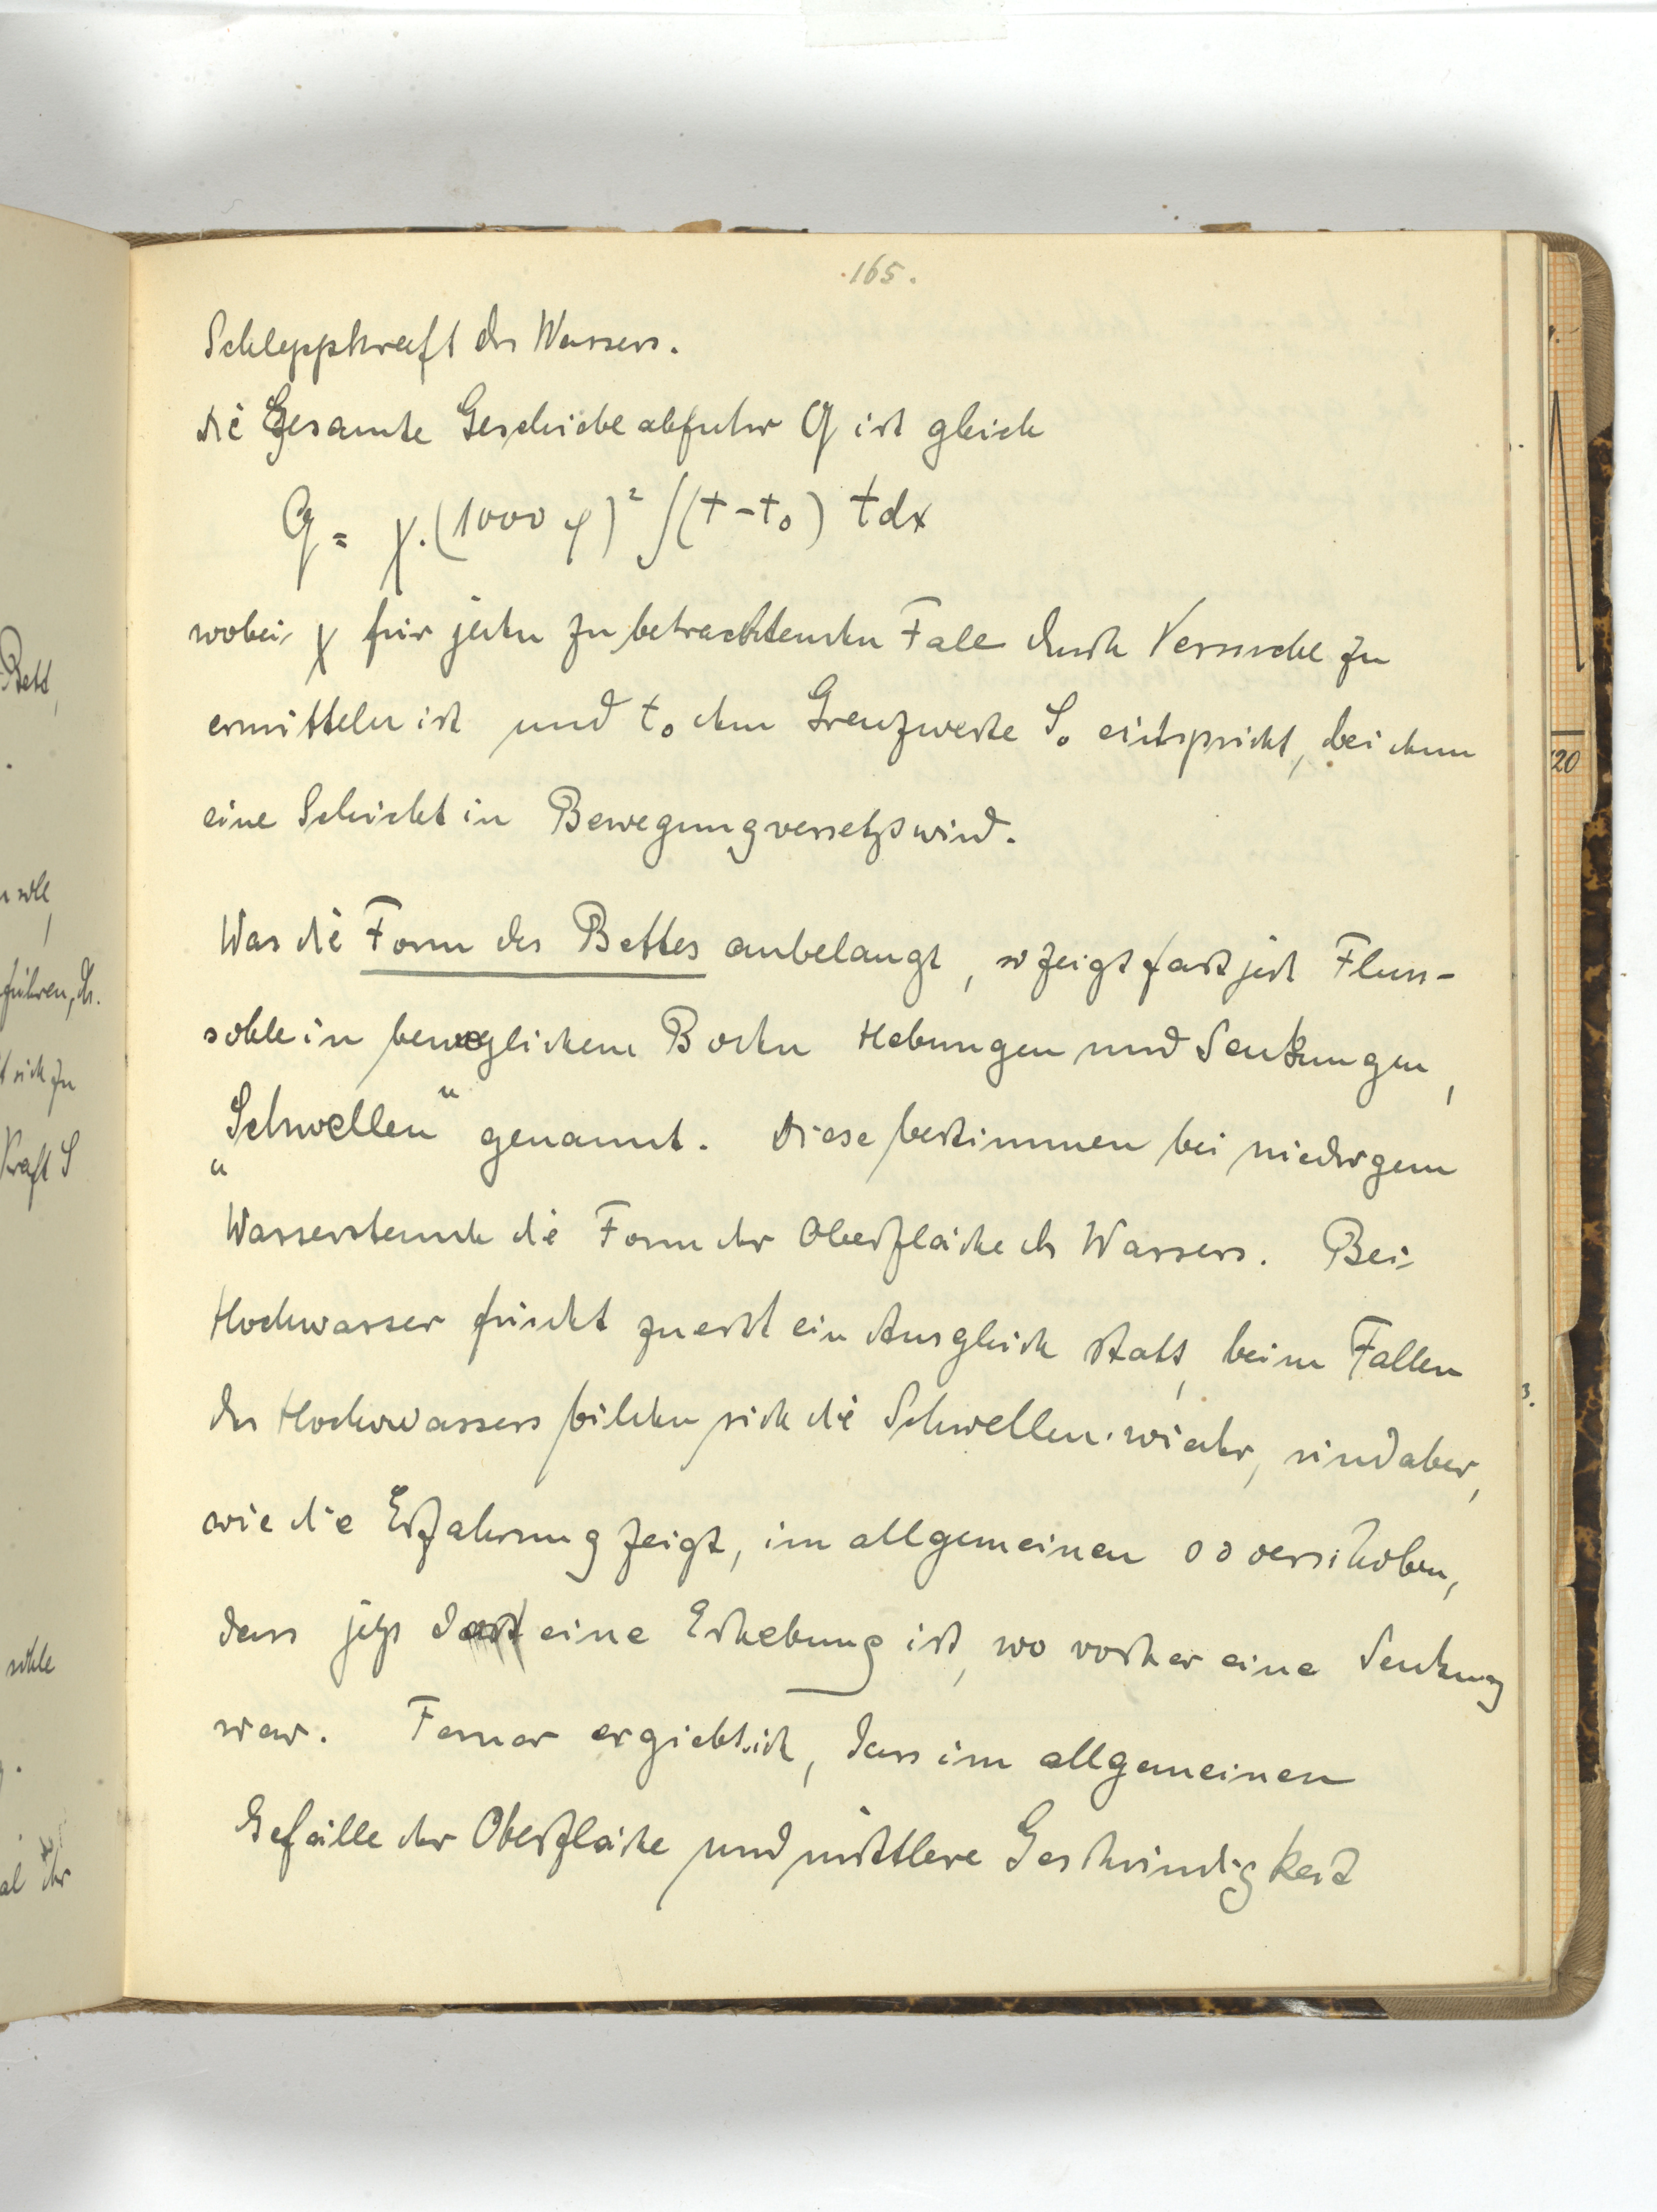 165.
Schleppkraft des Wassers.
die Gesamte Geschiebeabfuhr G ist gleich
G = χ.(1000 φ)² ∫(t-t₀) t dx
wobei χ für jeden zu betrachtenden Fall durch Versuche zu
ermitteln ist und t₀ dem Grenzwerte S₀ entspricht, bei dem
eine Schicht in Bewegung versetzt wird.
Was die Form des Bettes anbelangt, so zeigt fast jede Fluss-
sohle in beweglichem Boden Hebungen und Senkungen,
„Schwellen“ genannt. Diese bestimmen bei niedrigem
Wasserstande die Form der Oberfläche des Wassers. Bei
Hochwasser findet zuerst ein Ausgleich statt, beim Fallen
des Hochwassers bilden sich die Schwellen wieder, sind aber,
wie die Erfahrung zeigt, im allgemeinen so verschoben,
dass jetzt dort eine Erhebung ist, wo vorher eine Senkung
war. Ferner ergiebt sich, dass im allgemeinen
Gefälle der Oberfläche und mittlere Geschwindigkeit
Bett,
führen, d.
t sich zu
Kraft S
sohle
20
3.